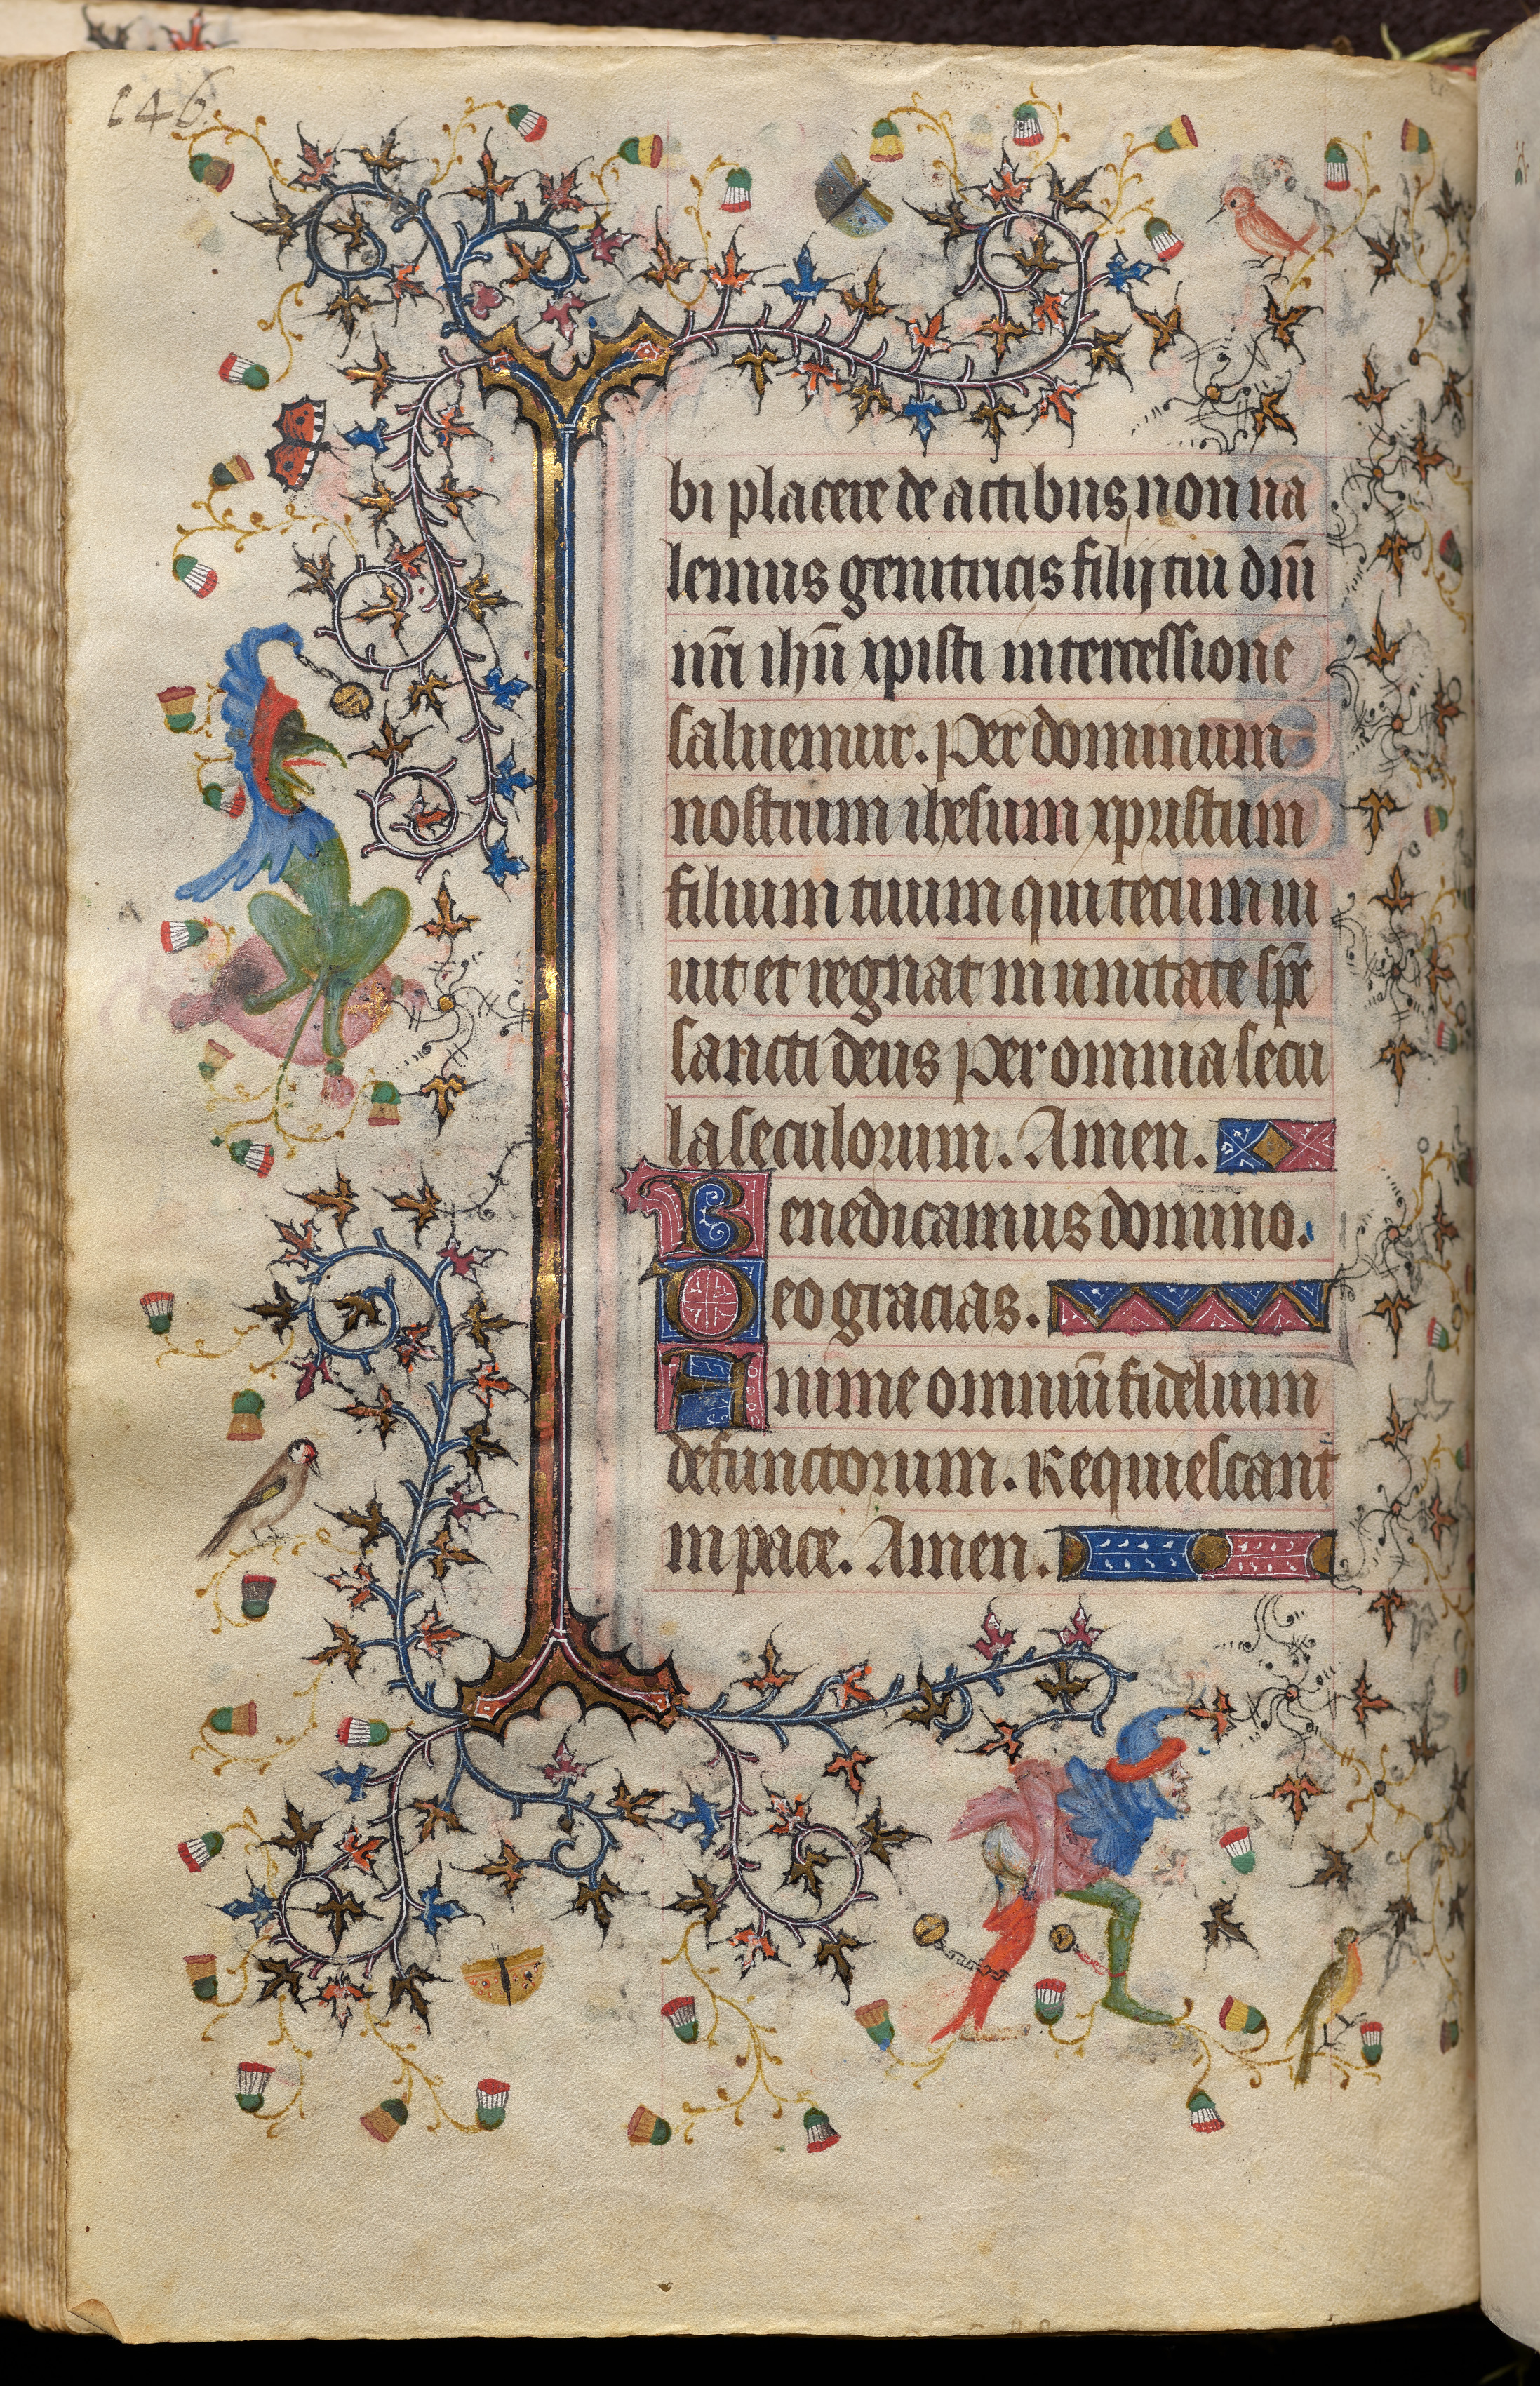 246
bi placere de actibus non ua
lemus genitricis filij tui dn̄i
nr̄i ih̄u xpisti intercessione
saluemur. Per dominum
nostrum ihesum xpristum
filium tuum qui tecum ui
uit et regnat in unitate sp̄c
sancti deus Per omnia secu
la seculorum. Amen.
Benedicamus domino.
Deo gracias.
Anime omniū fidelium
defunctorum. Requiescant
in pace. Amen.